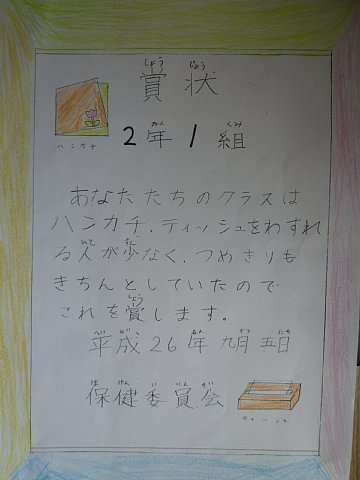 賞状
ハンカチ
2年1組
あなたたちのクラスは
ハンカチ、ティッシュをわすれ
る人が少なく、つめきりも
きちんとしていたので
これを賞します。
平成26年九月五日
保健委員会
ティッシュ